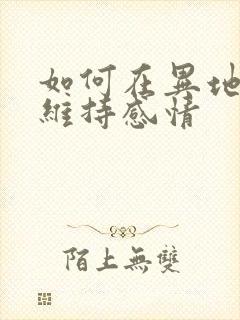 如何在異地
維持感情
陌上無雙